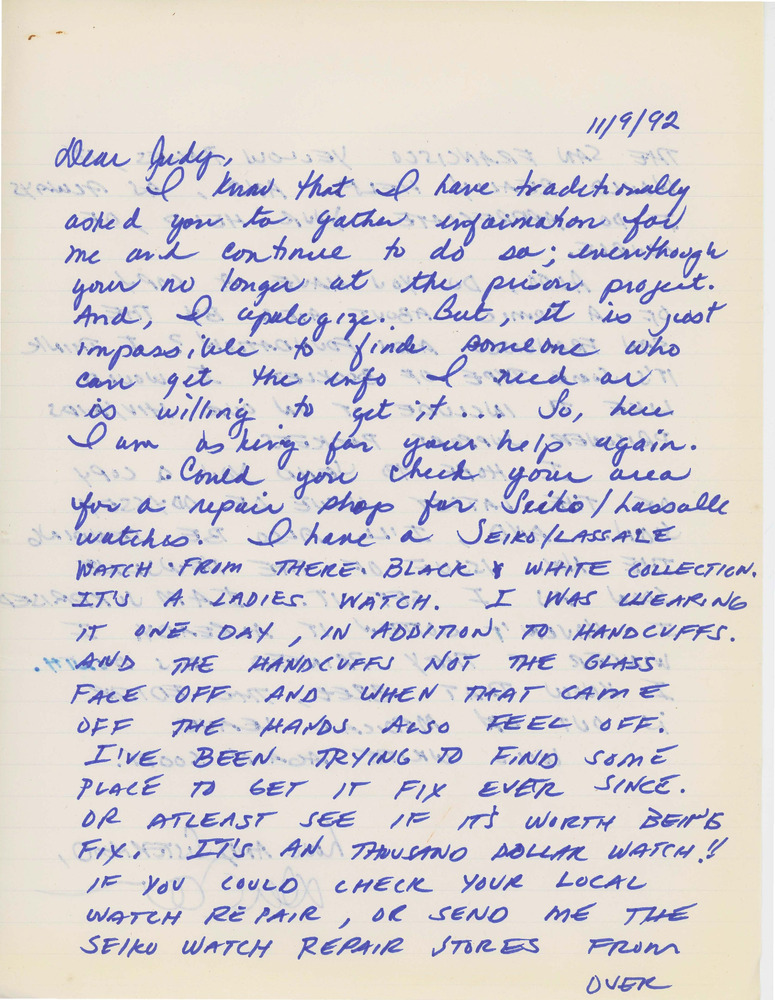 11/9/92
Dear Judy,
I know that I have traditionally
asked you to gather information for
me and continue to do so; eventhough
your no longer at the prison project.
And, I apologize.. But, it is just
impossible to find someone who
can get the info I need or
is willing to get it... So, here
I am asking for your help again.
Could you check your area
for a repair shop for Seiko/Lassalle
watches. I have a SEIKO/LASSALE
WATCH FROM THERE BLACK & WHITE COLLECTION.
IT'S A LADIES WATCH. I WAS WEARING
IT ONE DAY, IN ADDITION TO HANDCUFFS.
AND THE HANDCUFFS NOT THE GLASS
FACE OFF AND WHEN THAT CAME
OFF THE HANDS ALSO FEEL OFF.
I'VE BEEN TRYING TO FIND SOME
PLACE TO GET IT FIX EVER SINCE.
OR ATLEAST SEE IF IT'S WORTH BEING
FIX. IT'S AN THOUSAND DOLLAR WATCH!!
IF YOU COULD CHECK YOUR LOCAL
WATCH REPAIR, OR SEND ME THE
SEIKO WATCH REPAIR STORES FROM
OVER